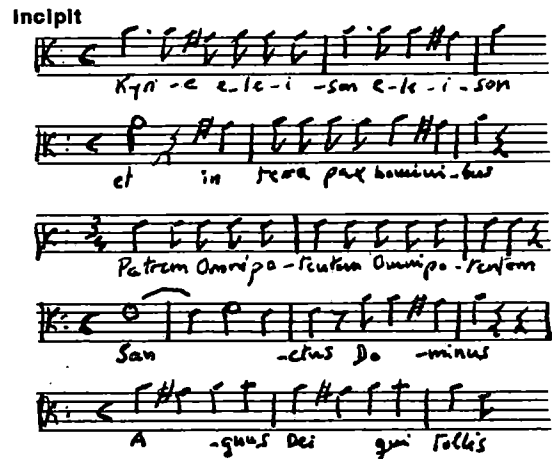 Incipit
Kyri-e e-le-i-son e-le-i-son
et in terra pax homini-bus
3/4
Patrem Omnipo-tentem Omnipo-tentem
San-ctus Do-minus
A-gnus Dei qui tollis